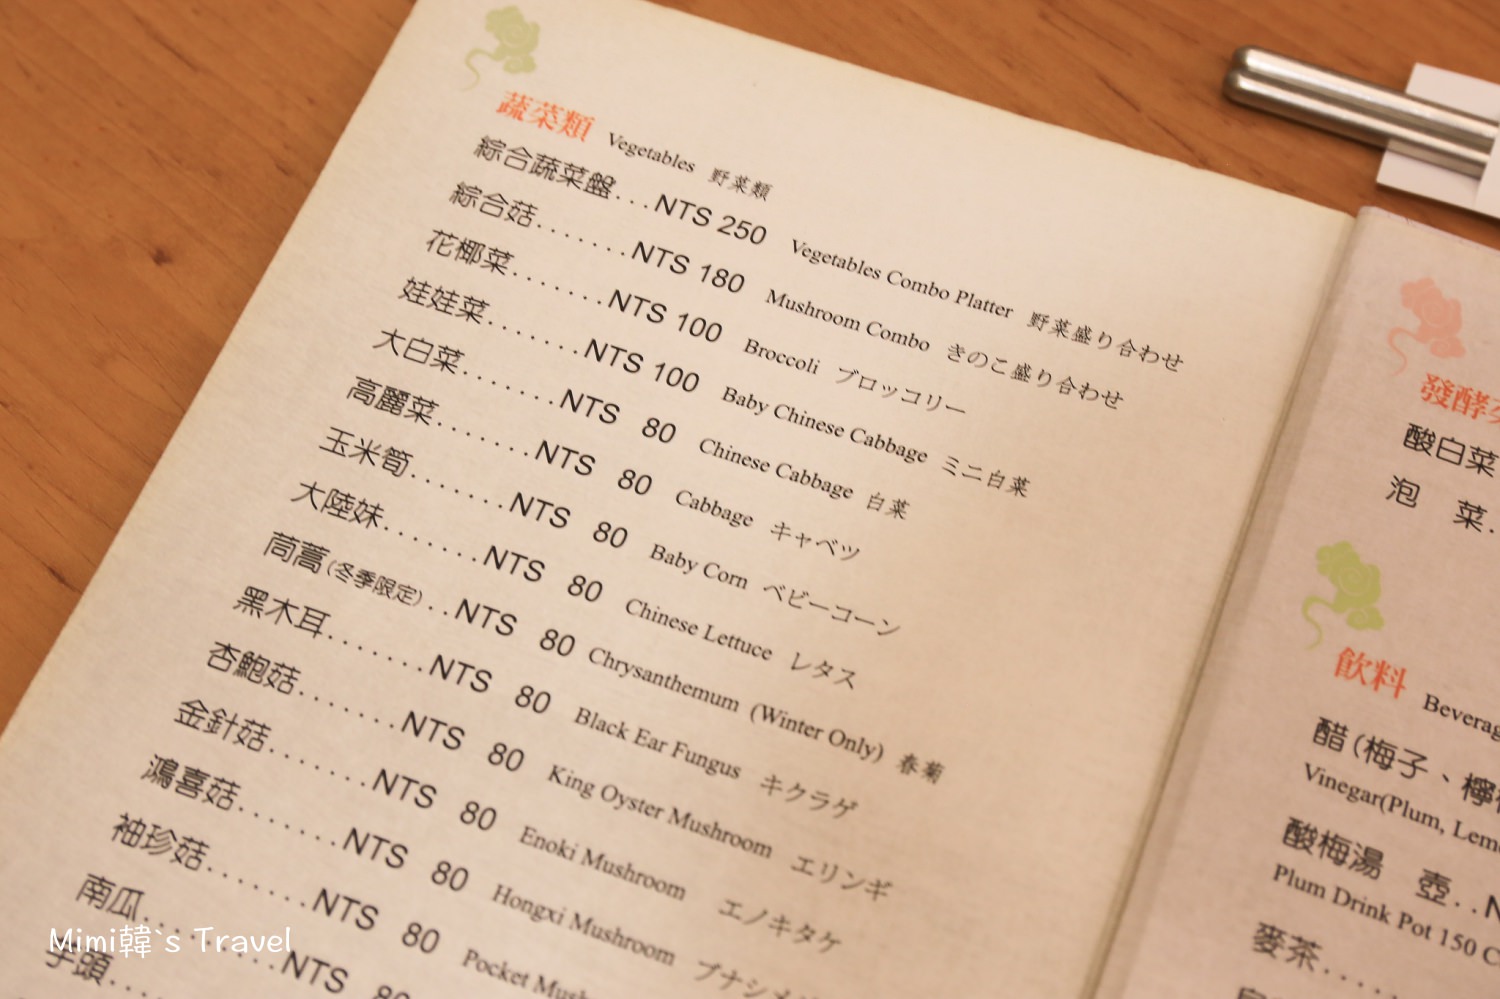 蔬菜類 Vegetables 野菜類
綜合蔬菜盤...NTS 250 Vegetables Combo Platter 野菜盛り合わせ
綜合菇.......NTS 180 Mushroom Combo きのこ盛り合わせ
花椰菜.......NTS 100 Broccoli ブロッコリー
娃娃菜.......NTS 100 Baby Chinese Cabbage ミニ白菜
大白菜.......NTS 80 Chinese Cabbage 白菜
高麗菜.......NTS 80 Cabbage キャベツ
玉米筍.......NTS 80 Baby Corn ベビーコーン
大陸妹.......NTS 80 Chinese Lettuce レタス
茼蒿(冬季限定)..NTS 80 Chrysanthemum (Winter Only) 春菊
黑木耳.......NTS 80 Black Ear Fungus キクラゲ
杏鮑菇.......NTS 80 King Oyster Mushroom エリンギ
金針菇.......NTS 80 Enoki Mushroom エノキタケ
鴻喜菇.......NTS 80 Hongxi Mushroom ブナシメ
袖珍菇.......NTS 80 Pocket Mush
南瓜.......NTS 80
芋頭....
發酵
酸白菜
泡 菜.
飲料 Beverag
醋(梅子、檸
Vinegar(Plum, Lem
酸梅湯 壺..N
Plum Drink Pot 150 C
麥茶.....
Mimi韓`s Travel